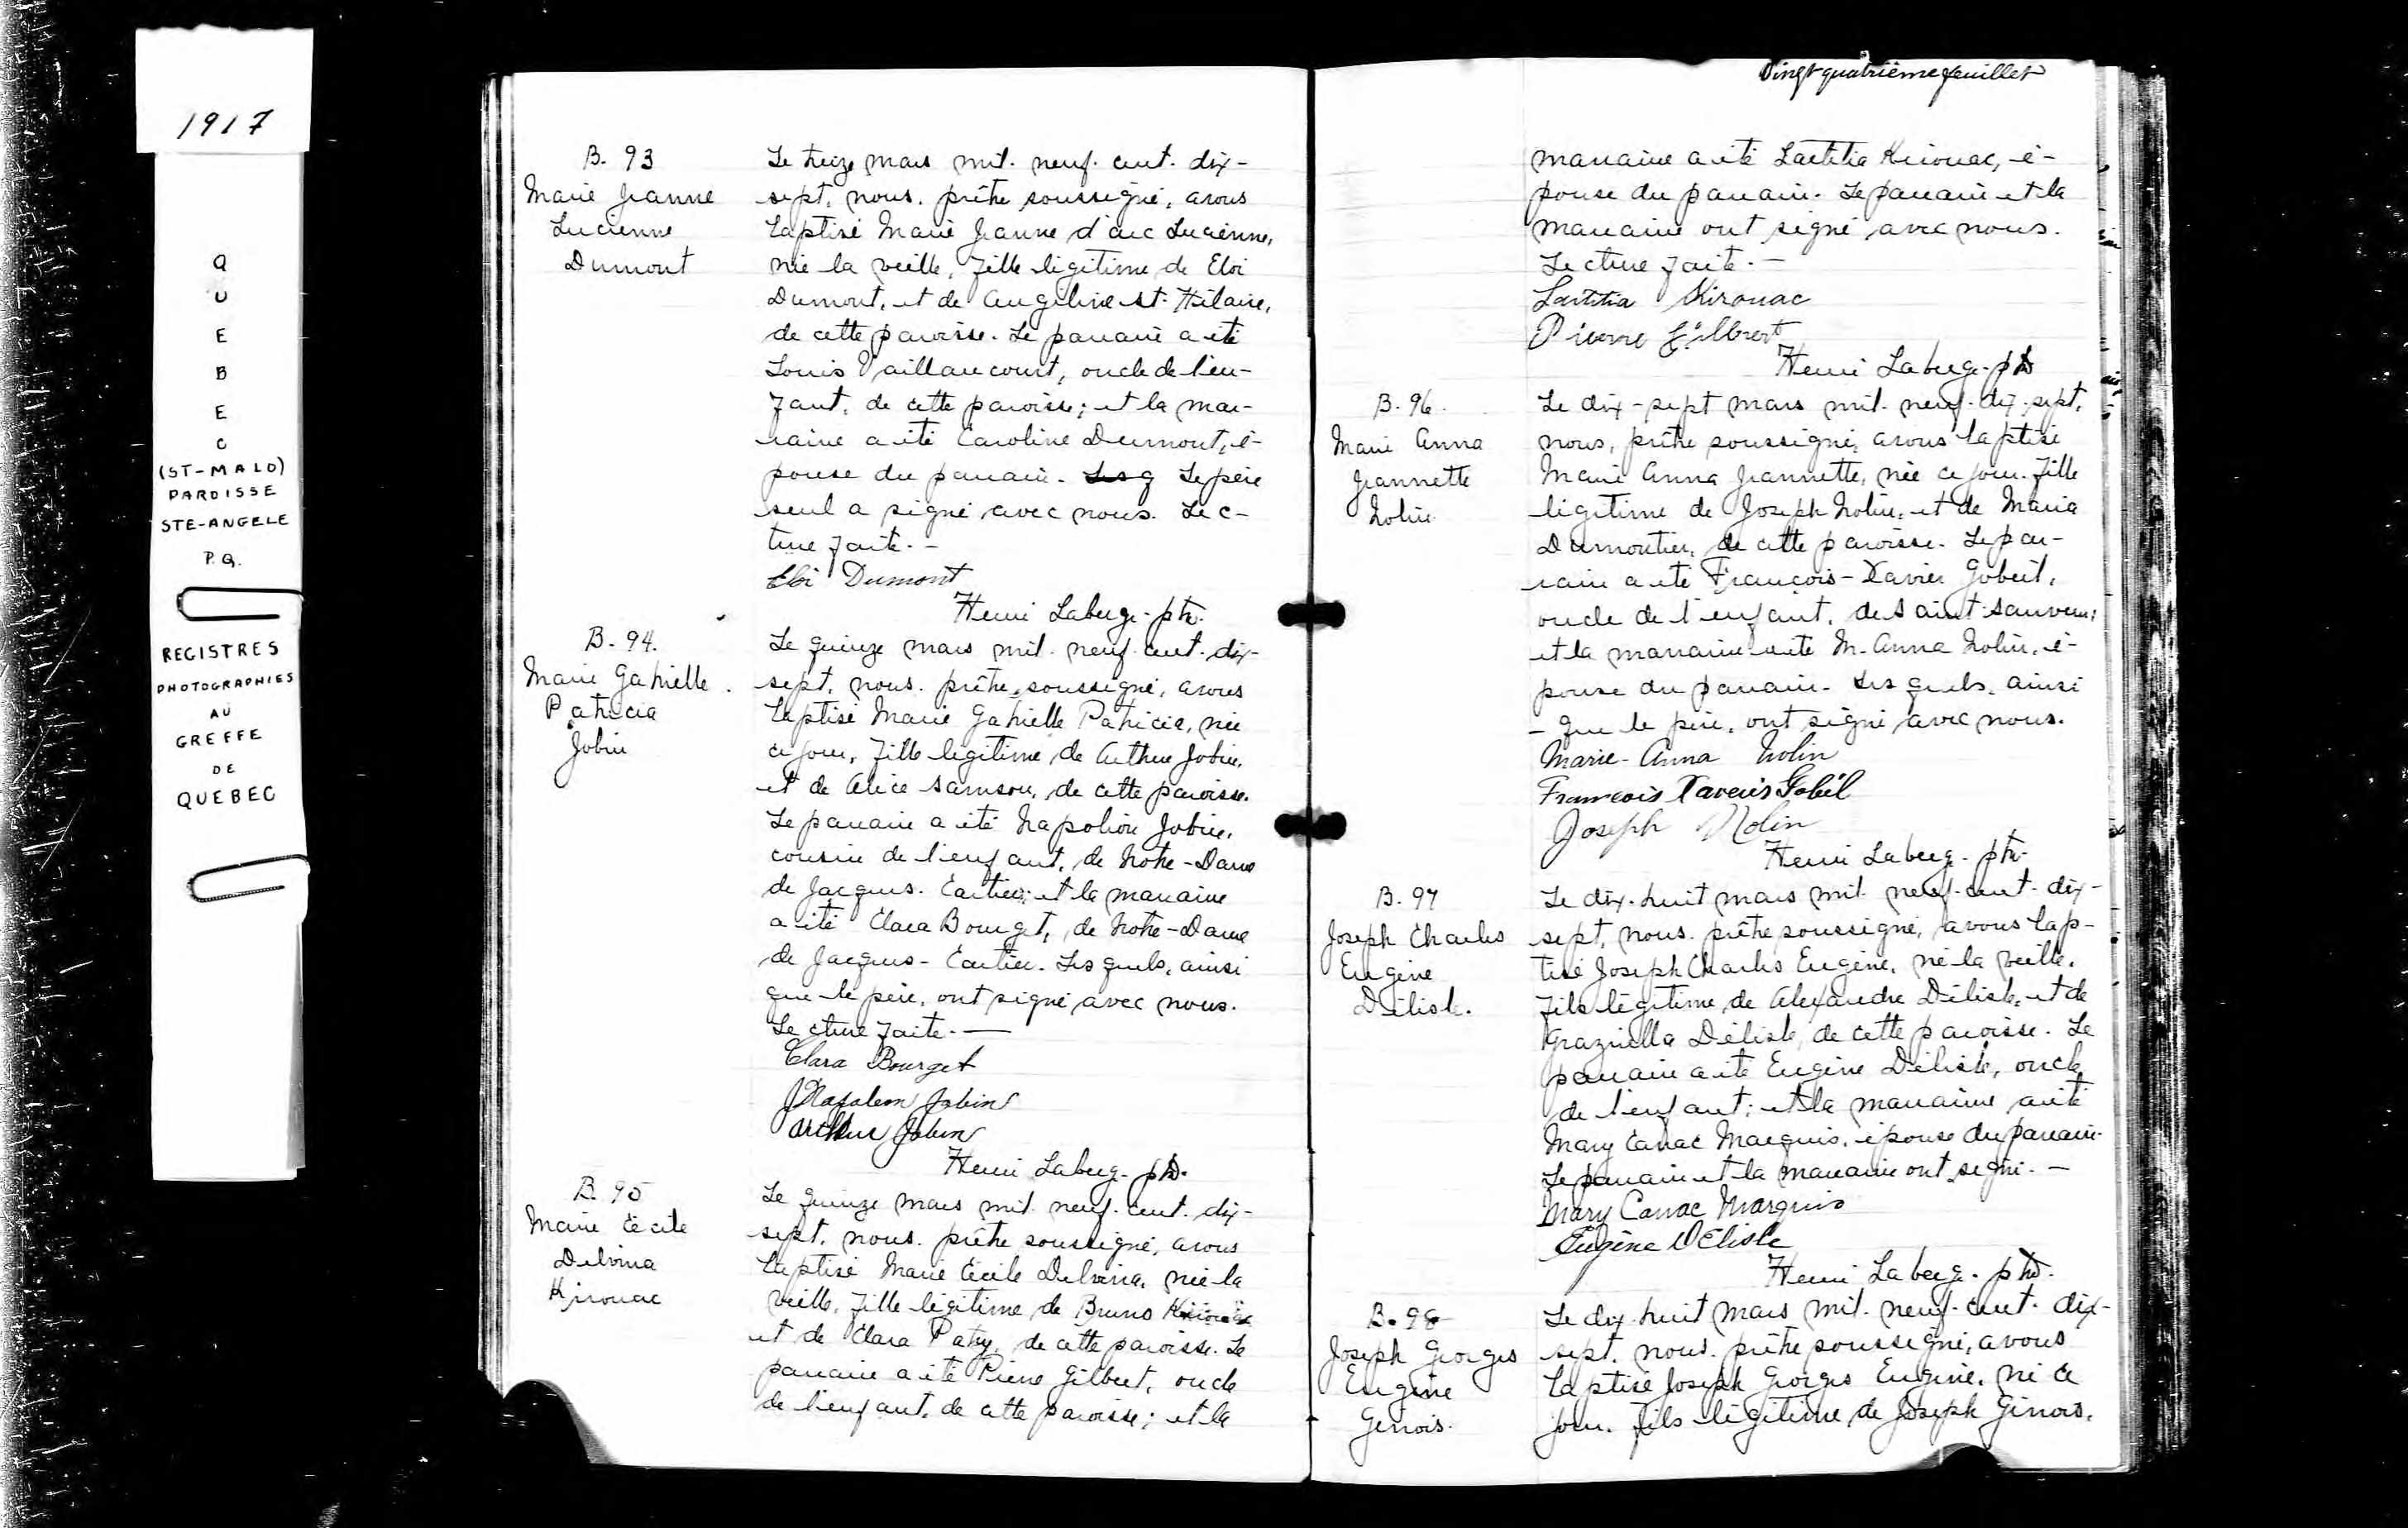 1917
Q
U
E
B
E
C
(ST-MALO)
PAROISSE
STE-ANGELE
P.Q.
REGISTRES
PHOTOGRAPHIES
AU
GREFFE
DE
QUEBEC
B. 93
Marie Jeanne
Lucienne
Dumont
Le treize mars mil. neuf. cent. dix-
sept, nous, prêtre soussigné, avons
baptisé Marie Jeanne d'arc Lucienne,
née la veille, fille légitime de Eloi
Dumont, et de Angéline St. Hilaire,
de cette paroisse. Le parrain a été
Louis Vaillancourt, oncle de l'en-
fant, de cette paroisse; et la mar-
raine a été Caroline Dumont, é-
pouse du parrain. Lesq Le père
seul a signé avec nous. Lec-
ture faite. -
Eloi Dumont
Henri Laberge. ptr.
B. 94.
Marie Gabrielle
Patricia
Jobin
Le quinze mars mil. neuf. cent. dix-
sept, nous, prêtre soussigné, avons
baptisé Marie Gabrielle Patricia, née
ce jour, fille légitime de Arthur Jobin,
et de Alice Samson, de cette paroisse.
Le parrain a été Napoléon Jobin,
cousin de l'enfant, de Notre-Dame
de Jacques. Cartier; et la marraine
a été Clara Bourget, de Notre-Dame
de Jacques-Cartier. Lesquels, ainsi
que le père, ont signé avec nous.
Lecture faite. —
Clara Bourget
J Napoleon Jobin
Arthur Jobin
Henri Laberge. ptr.
B. 95
Marie Cécile
Delvina
Kirouac
Le quinze mars mil. neuf. cent. dix-
sept, nous, prêtre soussigné, avons
baptisé Marie Cécile Delvina, née la
veille, fille légitime de Bruno Kirouac
et de Clara Patry, de cette paroisse. Le
parrain a été Pierre Gilbert, oncle
de l'enfant, de cette paroisse; et la
Vingt quatrième feuillet
marraine a été Laetitia Kirouac, é-
pouse du parrain. Le parrain et la
marraine ont signé avec nous.
Lecture faite. -
Laetitia Kirouac
Pierre Gilbert
Henri Laberge. ptr
B. 96.
Marie Anna
Jeannette
Nolin
Le dix-sept mars mil. neuf. dix. sept,
nous, prêtre soussigné, avons baptisé
Marie Anna Jeannette, née ce jour. fille
légitime de Joseph Nolin, et de Maria
Dumontier, de cette paroisse. Le par-
rain a été François-Xavier Gobeil,
oncle de l'enfant, de Saint-Sauveur;
et la marraine a été M. Anna Nolin, é-
pouse du parrain. Lesquels, ainsi
- que le père, ont signé avec nous.
Marie-Anna Nolin
Francois Xaveir Gobeil
Joseph Nolin
Henri Laberge. ptr.
B. 97
Joseph Charles
Eugène
Délisle.
Le dix. huit mars mil. neuf. cent. dix-
sept, nous, prêtre soussigné, avons bap-
tisé Joseph Charles Eugène, né la veille,
fils légitime de Alexandre Délisle, et de
Graziella Délisle, de cette paroisse. Le
parrain a été Eugène Délisle, oncle
de l'enfant; et la marraine a été
Mary Canac Marquis, épouse du parrain.
Le parrain et la marraine ont signé. -
Mary Canac Marquis
Eugène DElisle
Henri Laberge. ptr.
B. 98
Joseph Georges
Eugène
Genois.
Le dix. huit mars mil. neuf. cent. dix-
sept, nous, prêtre soussigné, avons
baptisé Joseph Georges Eugène, né ce
jour. fils légitime de Joseph Génois,